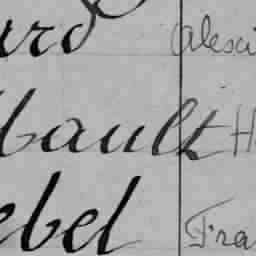 urd alexi
bault H
ebel Fra